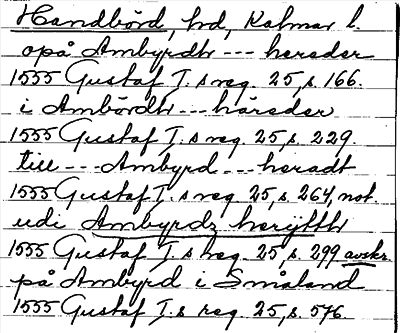 Handbörd, hd, Kalmar l.
opå Ambyrdtr --- hereder
1555 Gustaf I.s reg. 25, s. 166.
i Ambördtr --- häreder
1555 Gustaf I.s reg. 25, s. 229.
till --- Ambyrd --- heradt
1555 Gustaf I.s reg. 25, s. 264, not.
udi Ambyrdz herijttr
1555 Gustaf I.s reg. 25, s. 299 avskr.
på Ambyrd i Småland
1555 Gustaf I.s reg. 25, s. 576.